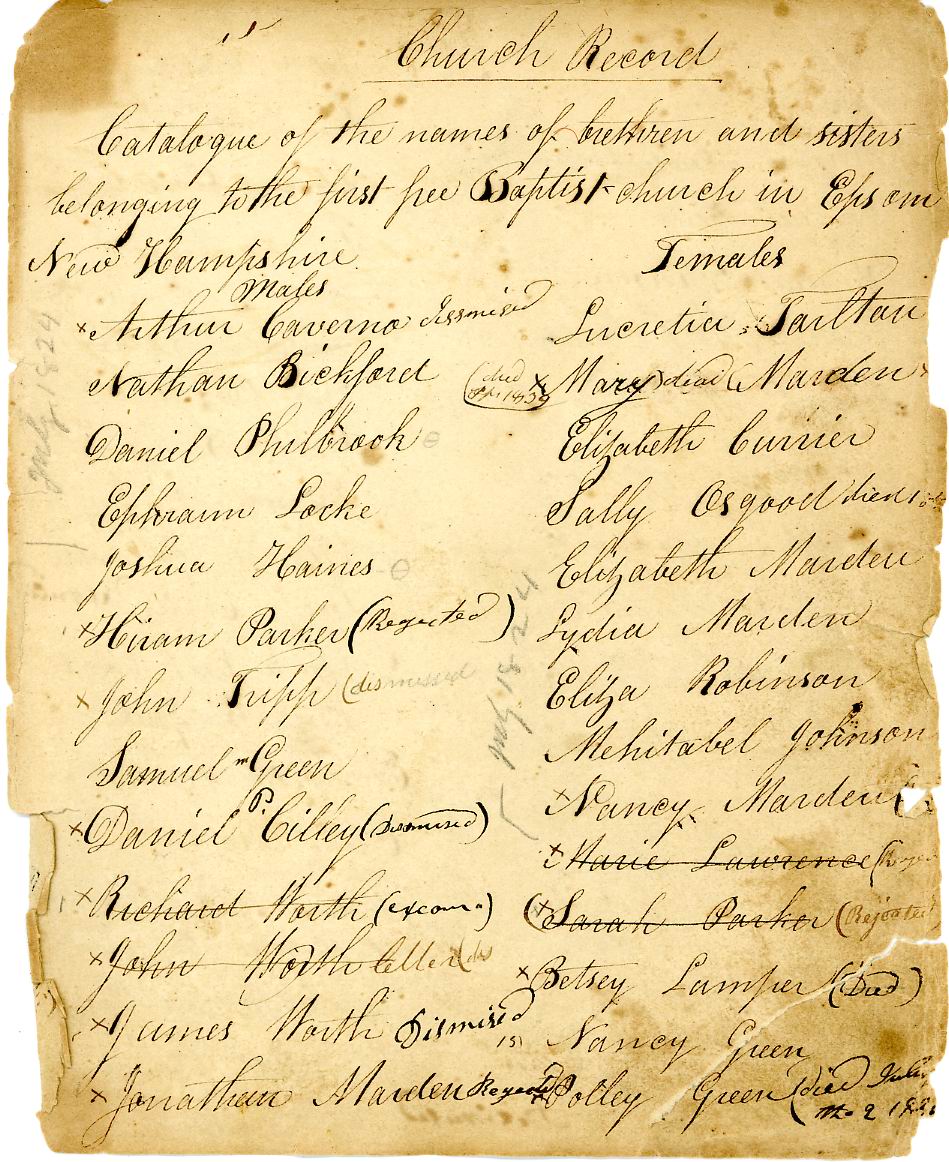 Church Record
Catalogue of the names of brethren and sisters
belonging to the first free Baptist church in Epsom
New Hampshire
Males
× Arthur Caverno dissmised
Nathan Bickford
Daniel Philbrook
Ephraim Locke
Joshua Haines
× Hiram Parker (Regected)
× John Tripp (dismissed
Samuel m Green
× Daniel P. Cilley (Dismised)
× Richard Worth (excom)
× John Worth letter
× James Worth Dismised
× Jonathan Marden Regected
July 1824
Females
Lucretia Tarltan
(died 1839 × Mary) died (Marden ×
Elizabeth Currier
Sally Osgood
Elizabeth Marden
Lydia Marden
Eliza Robinson
Mehitabel Johnson
× Nancy Marden
× Marie Lawrence
(× Sarah Parker (Rejected
× Betsey Lamper (Died)
Nancy Green
× Polley Green (died July
2
July 1824